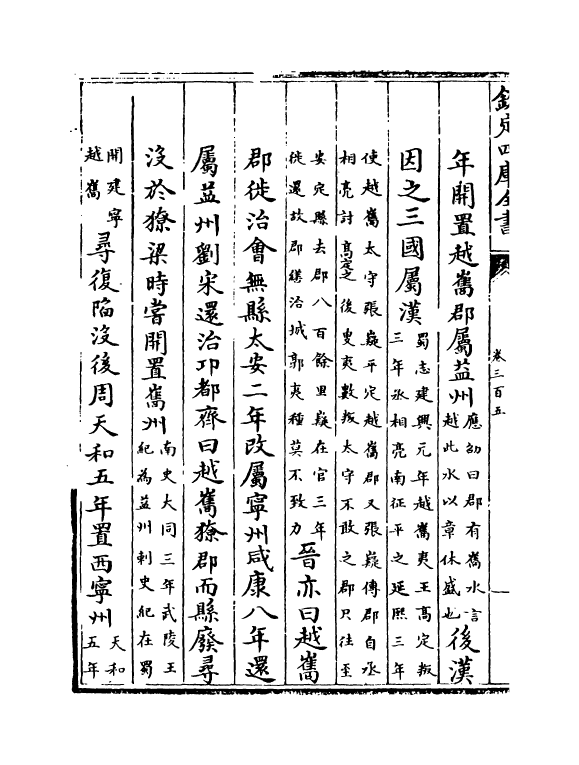 欽定四庫全書
卷三百五
年開置越嶲郡屬益州應劭曰郡有嶲水言越此水以章休盛也後漢
因之三國屬漢蜀志建興元年越嶲夷王高定叛三年丞相亮南征平之延熙三年
使越嶲太守張嶷平定越嶲郡又張嶷傳郡自丞相亮討高定之後叟夷數叛太守不敢之郡只往至
安定縣去郡八百餘里嶷在官三年徙還故郡繕治城郭夷種莫不致力晉亦曰越嶲
郡徙治會無縣太安二年改屬寧州咸康八年還
屬益州劉宋還治卭都齊曰越嶲獠郡而縣廢尋
沒於獠梁時嘗開置嶲州南史大同三年武陵王紀為益州刺史紀在蜀
開建寧越嶲尋復陷沒後周天和五年置西寧州天和五年